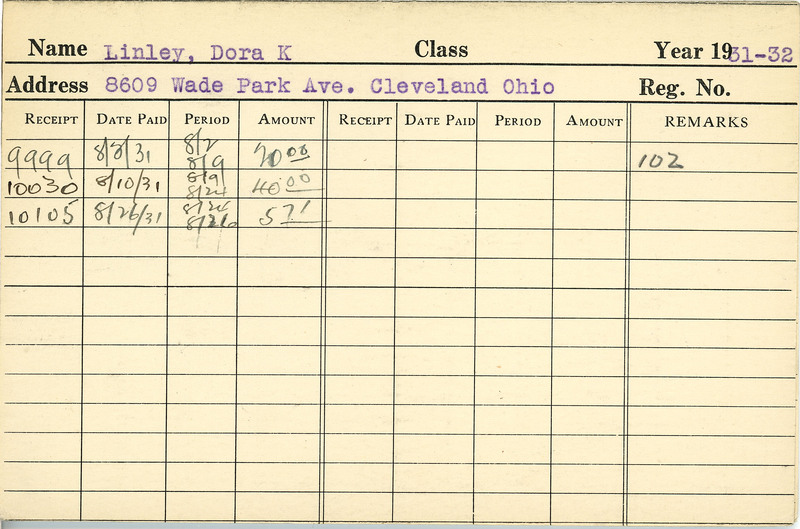 Name Linley, Dora K Class Year 1931-32
Address 8609 Wade Park Ave. Cleveland Ohio Reg. No.
RECEIPT DATE PAID PERIOD AMOUNT RECEIPT DATE PAID PERIOD AMOUNT REMARKS
8/2
9999 8/3/31 8/9 20 00 102
8/9
10030 8/10/31 8/24 40 00
8/24
10105 8/26/31 8/26 5 71